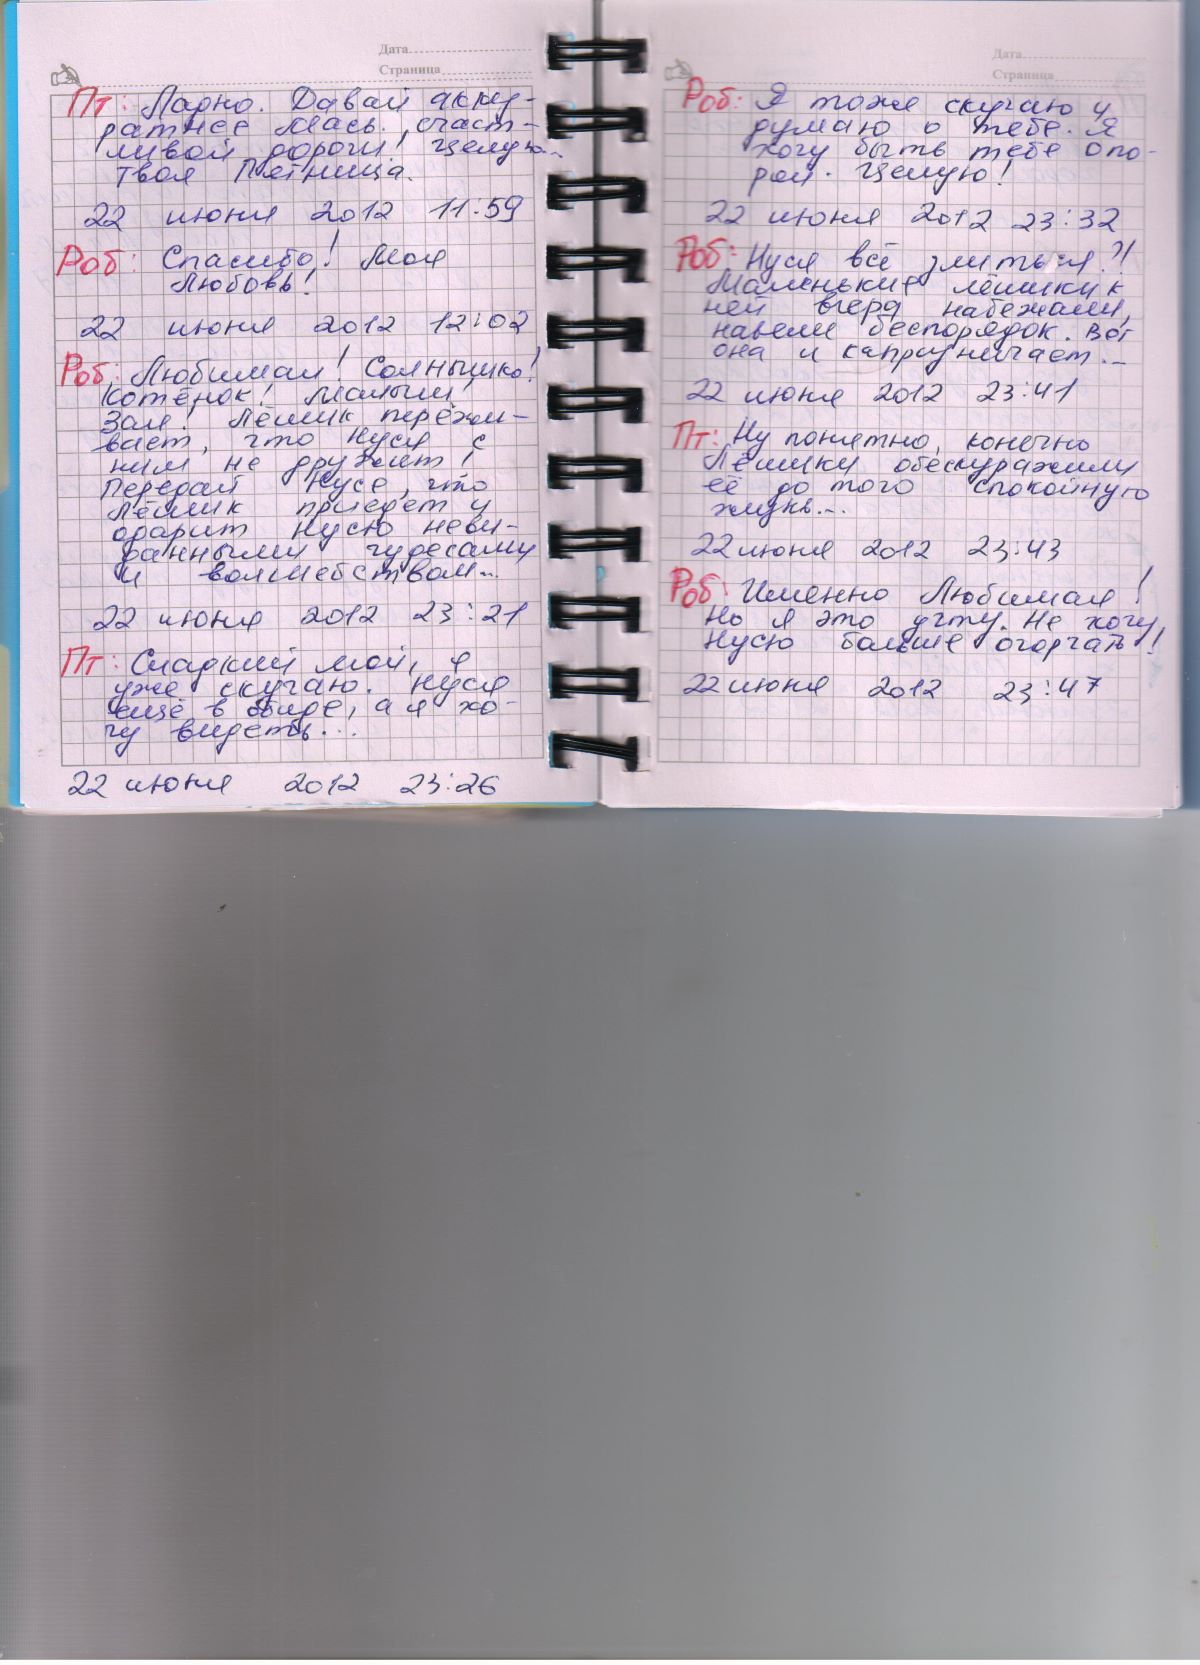 Дата
Страница
Пт: Ладно. Давай акку-
ратнее Мась. Счаст-
ливой дороги! Целую...
твоя Пятница.
22 июня 2012 11:59
Роб: Спасибо! Моя
Любовь!
22 июня 2012 12:02
Роб: Любимая! Солнышко!
Котёнок! Малыш!
Зая! Лёшик пережи-
вает, что Нуся с
ним не дружит!
Передай Нусе, что
Лёшик приедет и
одарит Нусю неви-
данными чудесами
и волшебством...
22 июня 2012 23:21
Пт: Сладкий мой, я
уже скучаю. Нуся
ещё в обиде, а я хо-
чу видеть...
22 июня 2012 23:26
Дата
Страница
Роб: Я тоже скучаю и
думаю о тебе. Я
хочу быть тебе опо-
рой. Целую!
22 июня 2012 23:32
Роб: Нуся всё злиться?!
Маленькие лёшики к
ней вчера набежали,
навели беспорядок. Вот
она и капризничает...
22 июня 2012 23:41
Пт: Ну понятно, конечно
Лёшики обескуражили
её до того спокойную
жизнь...
22 июня 2012 23:43
Роб: Именно Любимая!
Но я это учту. Не хочу
Нусю больше огорчать!
22 июня 2012 23:47